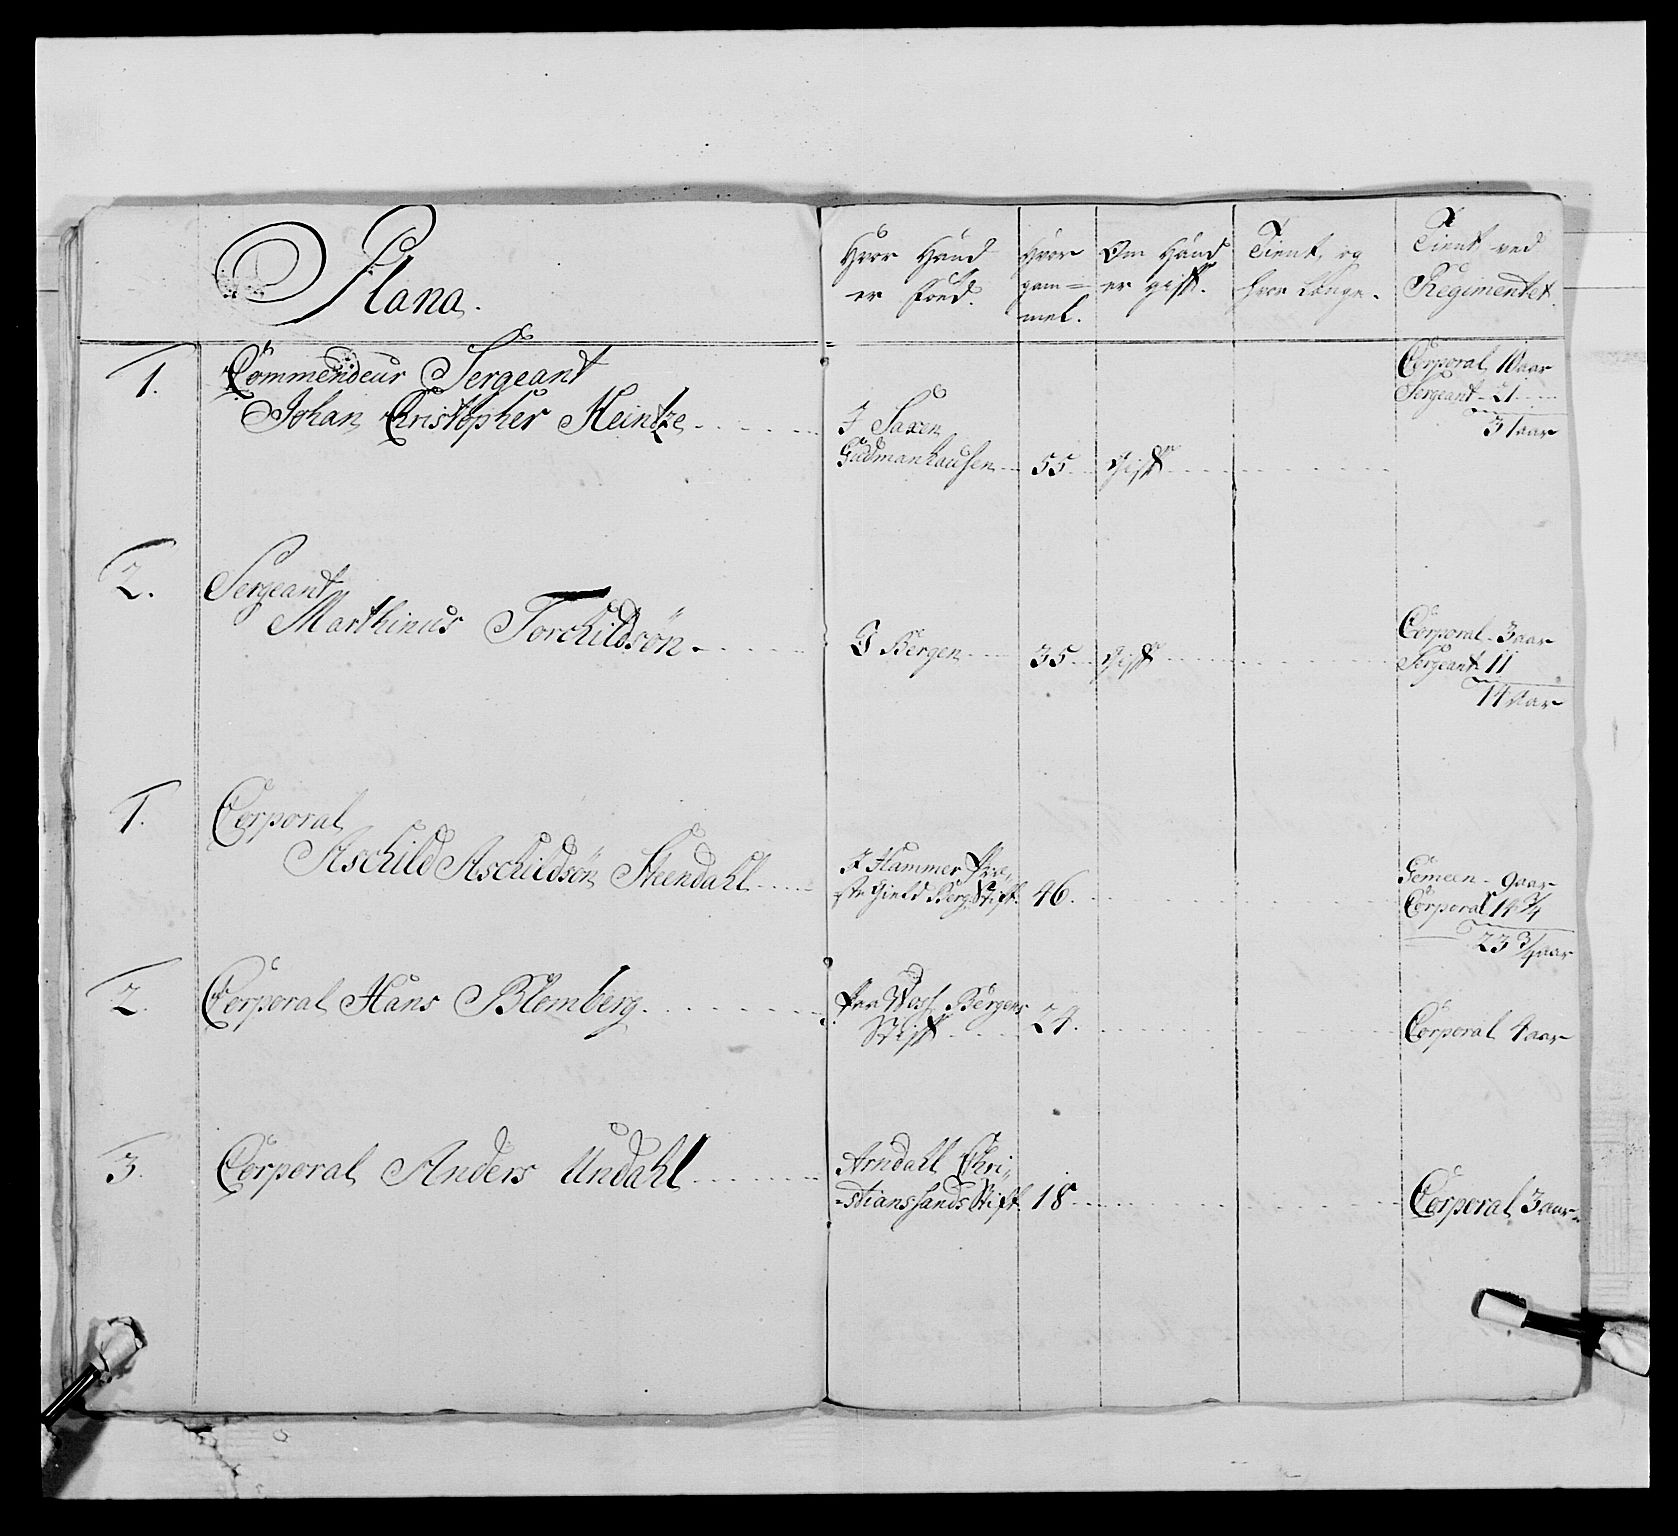 Plana.
Hvor Hand er Fød.
Hvor gam=mel.
Om Hand er gift.
Tient, og hvor Længe.
Tient ved Regimentet.
1. Commendeur Sergeant
Johan Christopher Heintze
I Saxen
Gudmanhausen
55.
Gift
Corporal 10 aar
Sergeant 21
31 aar
2. Sergeant
Marthinus Torchildsøn
I Bergen
35
Gift
Corporal 3 aar
Sergeant 11
14 aar
1. Corporal
Aschild Aschildsøn Steendahl
I Hammer Præ-
ste Gield Berg. Stift.
46.
Gemeen 9 aar
Corporal 14 3/4
23 3/4 aar
2. Corporal Hans Blomberg
Paa Woss Bergens
Stift
24.
Corporal 4 aar
3. Corporal Anders Undahl
Arndahl Chri-
-stianssands Stift.
18
Corporal 3 aar